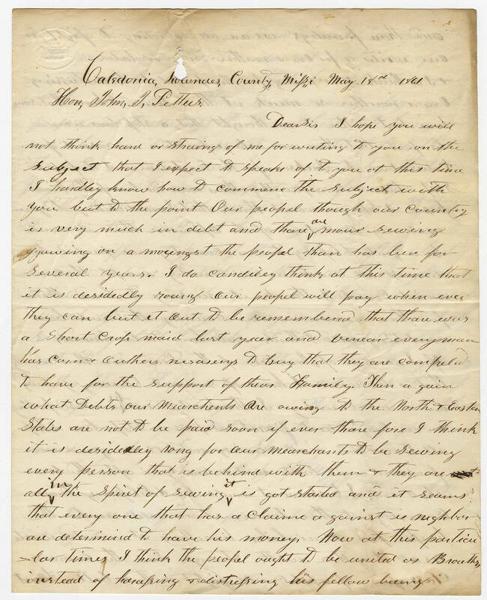 Caledonia, Lowndes, County, Missi May 18th 1861
Hon, John, J, Pettus
Dear Sir I hope you will
not think hard or strang of me for writing to you on the
Subject that I expect to speake of to you at this time
I hardley know how to commence the subject with
you but to the point Our peopel though our Country
is very much in debt and thare are mour sewing
gowing on a moungst the peopel than has bee for
several years. I do candidley think at this time that
it is desidedly rong Our peopel will pay when ever
they can but it out to be remembered that thare was
a Short Crop maid last year and evry man
has Corn & nesarys to buy that they are compeld
to have for the support of thear Family. Then a gain
what Debts our Mearchents are owing to the North & Eastern
States are not to be paid soon if ever thare fore I think
it is desidedley rong for our mearchants to be sewing
every person that is behind with them & they are
all in the spirit of sewing it is got started and it seams
that every one that has a Claime a gainst is neighbor
are determind to have his money. Now at this particu
-lar time I think the peopel ought to be united as Brothers
instead of harassing & distressing his fellow being